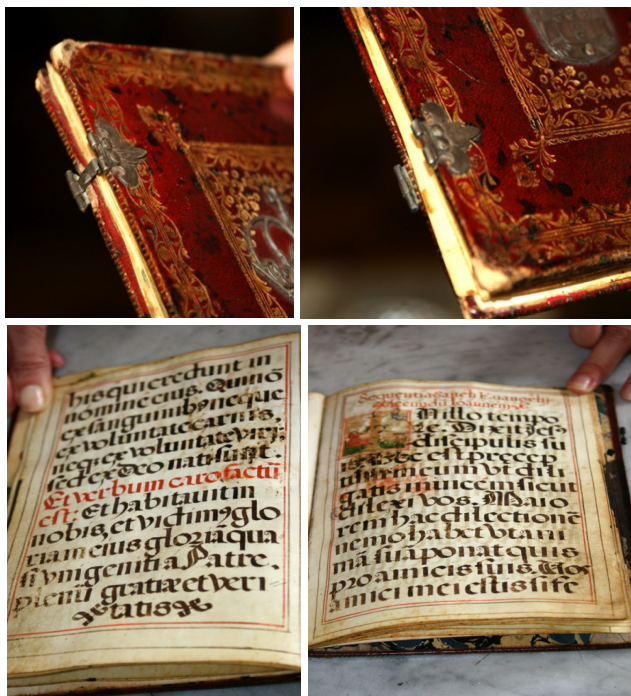 his qui credunt in
nomine eius. Qui nō
ex sanguinibꝰ, neque
ex voluntate carnis,
neq; ex voluntate viri;
sed ex Deo nati sunt.
Et verbum caro factū
est: Et habitauit in
nobis, et vidimꝰ glo
riam eius gloriā qua
si vnigeniti a Patre,
plenū gratiæ et veri
tatis
Sequentia sancti Euangelij
secundū Joannem
In illo tempo
re. Dixit Jesꝰ
discipulis su
is. Hoc est precep
tum meum vt dili
gatis inuicem sicut
dilexi vos. Maio
rem hac dilectionē
nemo habet vt ani
mā suā ponat quis
pro amicis suis. Vos
amici mei estis si fe